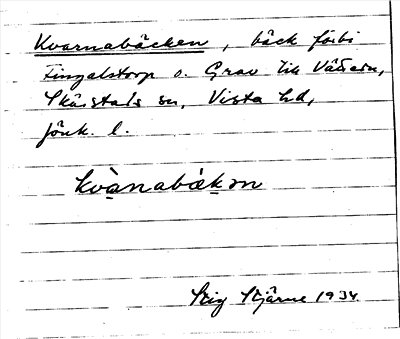 Kvarnabäcken, bäck förbi
Fingalstorp o. Grav till Vättern,
Skärstads sn, Vista hd,
Jönk. l.
kvànabäkən
Stig Stjärne 1934